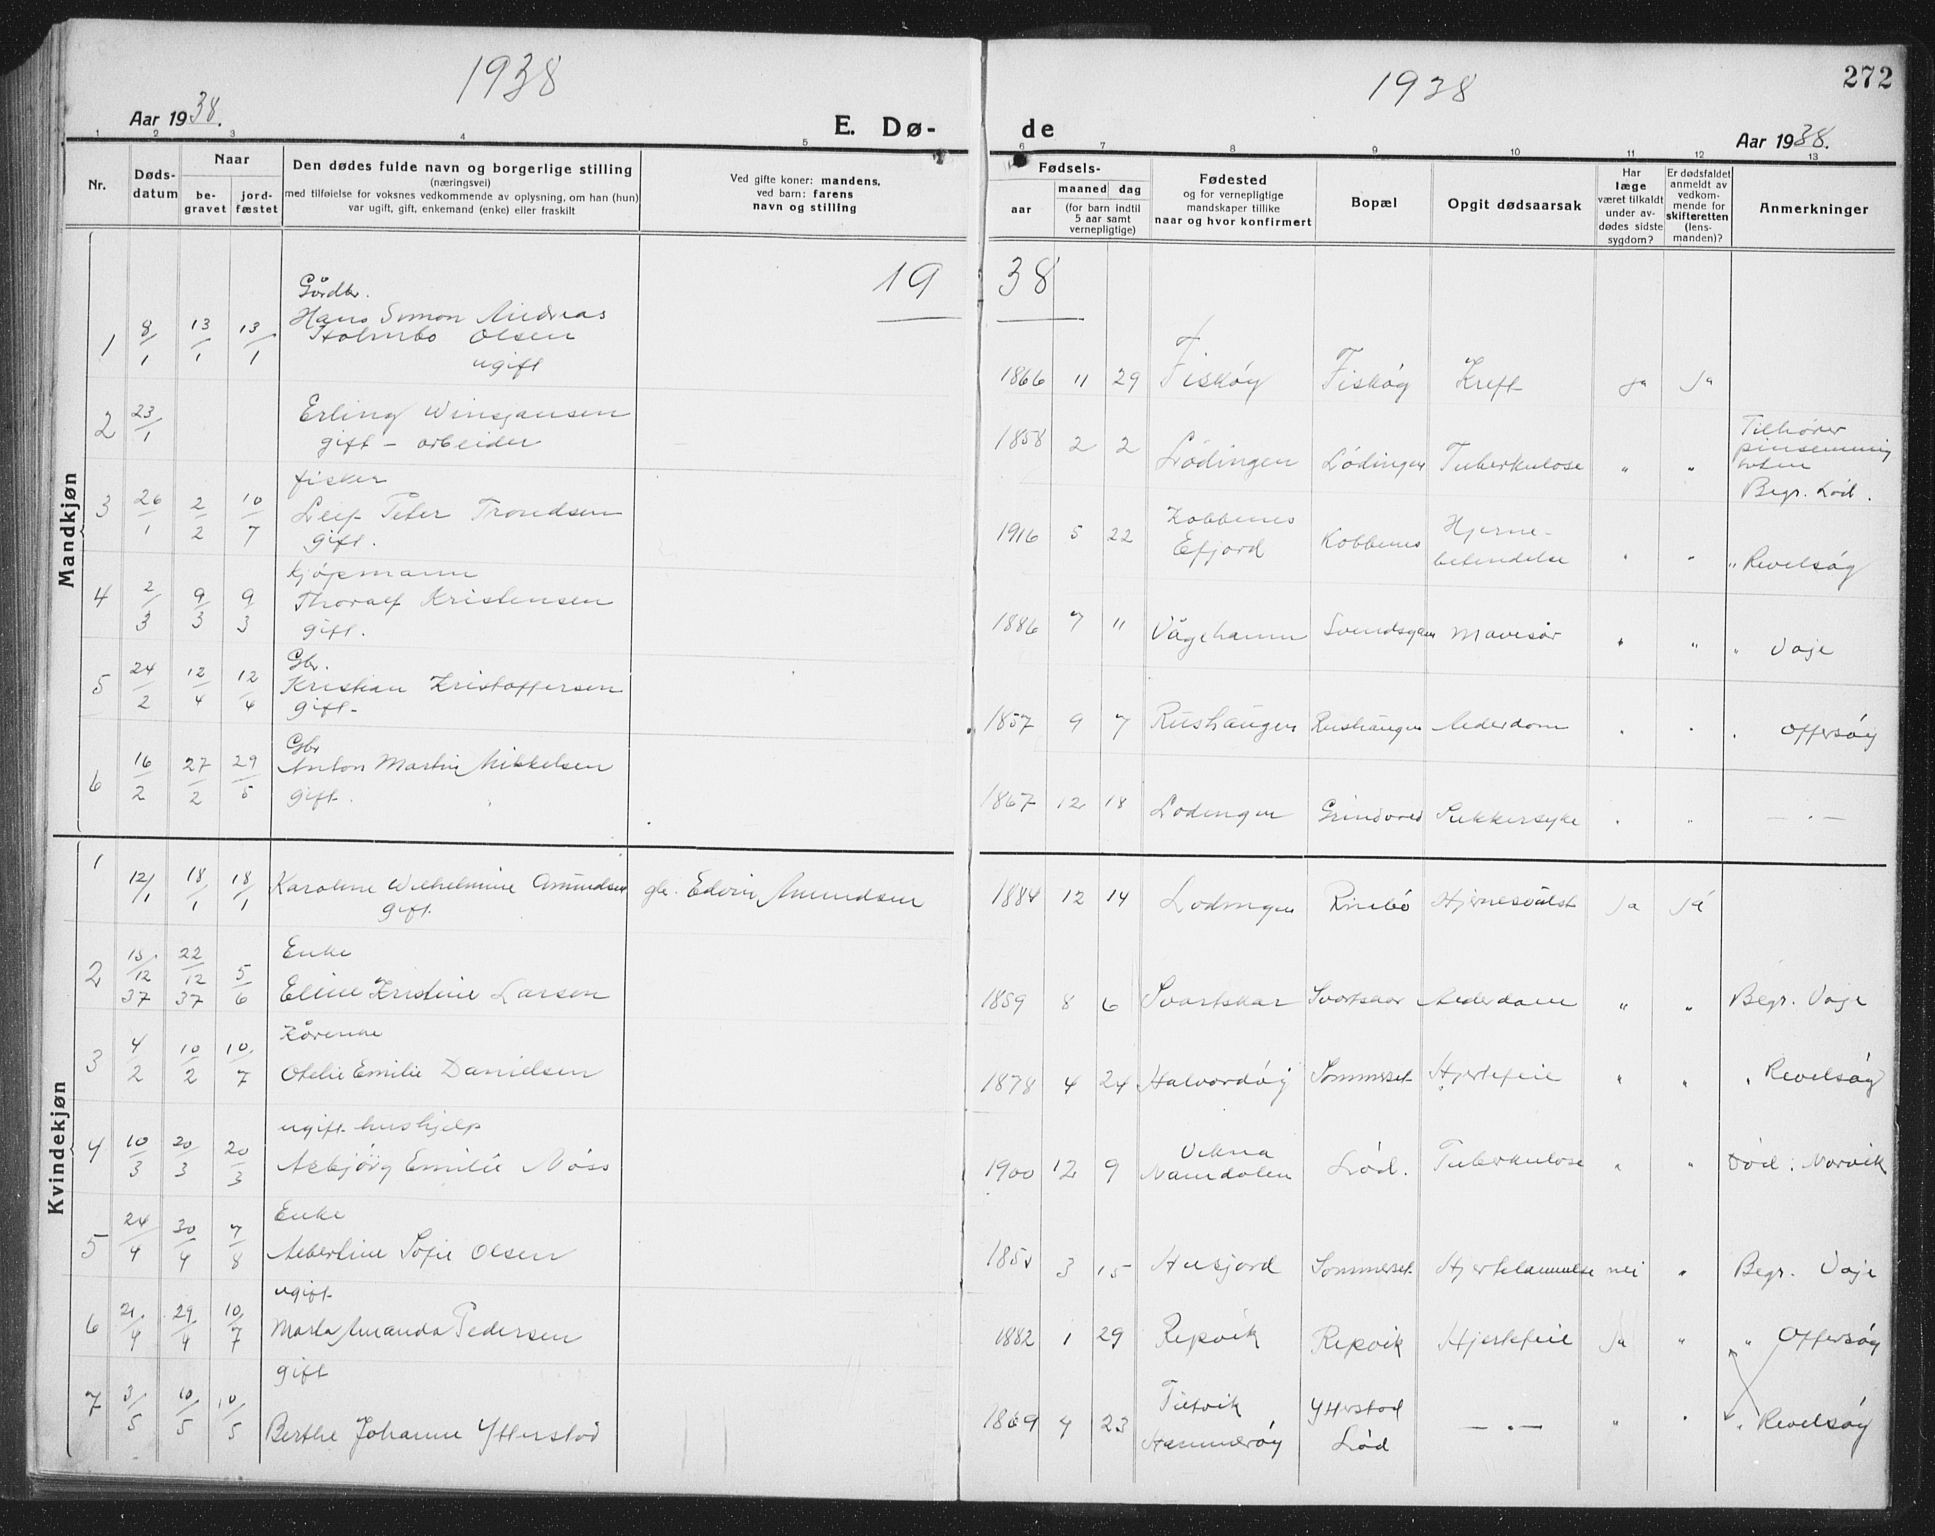 1938
1938
272
Aar 1938.
E. Dø-
de
Aar 1938.
1 2 3 4 5 6 7 8 9 10 11 12 13
Nr.
Døds-
datum
Naar
be-
gravet
jord-
fæstet
Den dødes fulde navn og borgerlige stilling
(næringsvei)
med tilføielse for voksnes vedkommende av oplysning, om han (hun)
var ugift, gift, enkemand (enke) eller fraskilt
Ved gifte koner: mandens,
ved barn: farens
navn og stilling
Fødsels-
aar
maaned dag
(for barn indtil
5 aar samt
vernepligtige)
Fødested
og for vernepligtige
mandskaper tillike
naar og hvor konfirmert
Bopæl
Opgit dødsaarsak
Har
læge
været tilkaldt
under av-
dødes sidste
sygdom?
Er dødsfaldet
anmeldt av
vedkom-
mende for
skifteretten
(lens-
manden)?
Anmerkninger
19 38
Mandkjøn
Gårdbr.
Hans Simon Andreas
Holmbo Olsen
ugift
1 8/1 13/1 13/1 1866 11 29 Fiskøy Fiskøy Kreft ja ja
2 23/1 Erling
gift - arbeider
1858 2 2 Lødingen Lødingen Tuberkulose " "
Tilhører
pinsemenig
heten
Begr. Lød.
fisker
3 26/1 2/2 10/7 Leif Peter Trondsen
gift.
1916 5 22 Kobbenes
Efjord
Kobbenes Hjerne-
betendelse " " " Revelsøy
kjøpmann
4 2/3 9/3 9/3 Thoralf Kristensen
gift.
1886 7 11 Vågehamn Mavesår " " " Vaje
Gbr.
5 24/2 12/4 12/4 Kristian Kristoffersen
gift-
1857 9 7 Rushaugen Rushaugen Alderdom " " " Offersøy
Gbr
6 16/2 27/2 29/5 Anton Martin Mikkelsen
gift.
1867 12 18 Lødingen Sukkersyke " " — " —
Kvindekjøn
1 12/1 18/1 18/1 Karoline Wilhelmine Amundsen
gift
Edvin Amundsen 1884 12 14 Lødingen Rinbø Hjernesvulst ja ja
Enke
2 15/12 37 22/12 37 5/6 Eline Kristine Larsen
1859 8 6 Svartskar Svartskar Alderdom " " Begr. Vaje
Kårenke
3 4/2 10/2 10/7 Otelie Emilie Danielsen
1878 4 24 Halvardøy Sommerset Hjertefeil " " " Revelsøy
ugift hushjelp
4 10/3 20/3 20/3 Asbjørg Emilie Moss
1900 12 9 Vikna
Namdalen
Lød. Tuberkulose " " Død i Narvik
Enke
5 24/4 30/4 7/8 Albertine Sofie Olsen
3 15 Husjord Sommerset Hjertelammelse nei " Begr. Vaje
ugift
6 21/4 29/4 10/7 Marta Amanda Pedersen
1882 1 29 Repvik Repvik Hjertefeil ja " " Offersøy
gift
7 3/5 10/5 10/5 Berthe Johanne Ytterstad
1869 4 23
Hammerøy
Ytterstad
Lød
— " — " " " Revelsøy